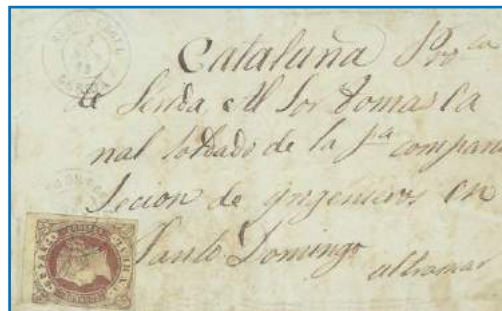 Cataluña Pro ca
de Lerida Al Sor Tomas Ca
nal Soldado de la 1ª compani
Secion de yngenieros en
Santo Domingo
ultramar